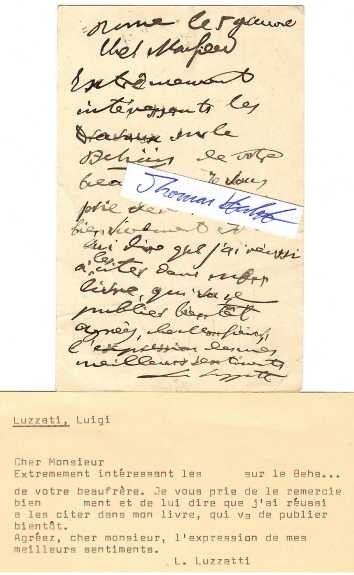 Rome le 5
Cher Monsieur
Extrêmement
intéressants les
travaux sur le
de votre
beau Je vous
Thomas
prie
bien vivement et
lui dire que j'ai réussi
à les citer dans mon
livre, qui va se
publier bientôt
Agréez, cher Monsieur,
l'expression de mes
meilleurs sentiments
L. Luzzatti
Luzzati, Luigi
Cher Monsieur
Extremement intéressant les sur le Beha...
de votre beaufrère. Je vous prie de le remercie
bien ment et de lui dire que j'ai réussi
a les citer dans mon livre, qui va de publier
bientôt.
Agréez, cher monsieur, l'expression de mes
meilleurs sentiments.
L. Luzzatti